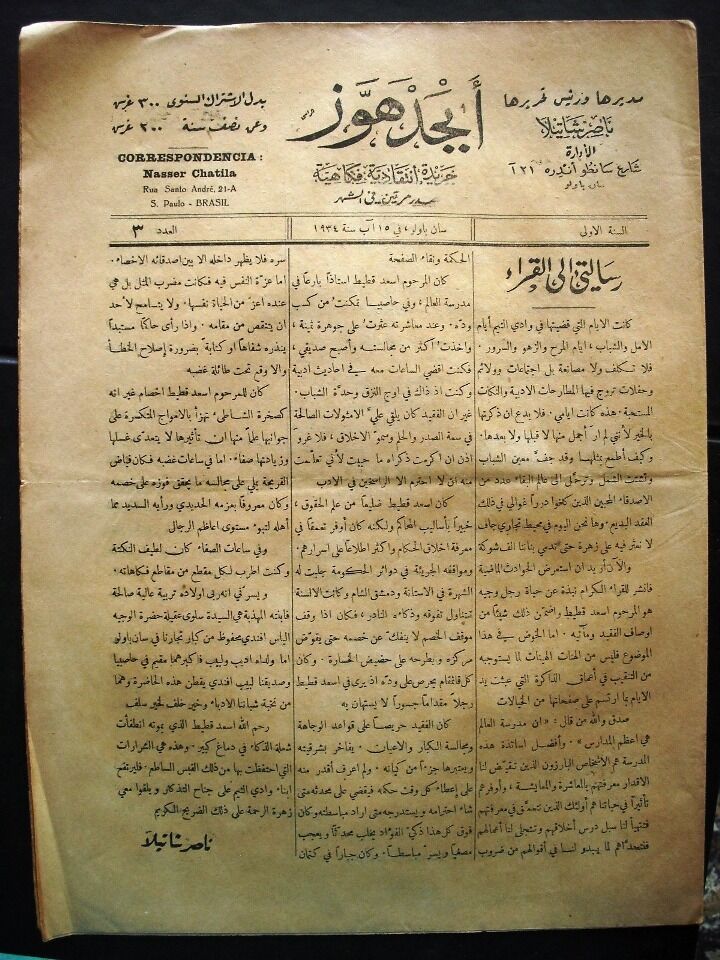 مديرها ورئيس تحريرها
ناصر شاتيلا
الادارة
شارع سانطو أندره ٢١ آ
سان باولو
أبجد هوَّز
جريدة انتقادية فكاهية
تصدر مرتين في الشهر
بدل الاشتراك السنوي ٣٠٠ غرش
وعن نصف سنة ٢٠٠ غرش
CORRESPONDENCIA:
Nasser Chatila
Rua Santo André, 21-A
S. Paulo - BRASIL
السنة الاولى
سان باولو، في ١٥ آب سنة ١٩٣٤
العدد ٣
رسالتي الى القراء
كانت الايام التي قضيتها في وادي التيم أيام
الامل والشباب، ايام المرح والزهو والسرور.
فلا تسكلف ولا مصانعة بل اجتماعات وولائم
وحفلات تروج فيها المطارحات الادبية والنكات
المستحبة. هذه كانت ايامي. فلا بدع ان ذكرتها
بالخير لأنني لم ارَ أجمل منها لا قبلها ولا بعدها.
وكيف أطمع بمثلها وقد جفَّ معين الشباب
وتشتت الشمل وترحَّل الى عالم البقاء عدد من
الاصدقاء المحبين الذين كانوا درراً غوالي في ذلك
العقد البديع. وها نحن اليوم في محيط تجاري جاف
لا نعثر فيه على زهرة حتى تدمي بناننا الف شوكة
والآن أريد ان استعرض الحوادث الماضية
فانشر للقراء الكرام نبذة عن حياة رجل وجيه
هو المرحوم اسعد قطيط راضين ذلك شيئاً من
اوصاف الفقيد ومآتيه. اما الخوض في هذا
الموضوع فليس من الهنات الهينات لما يستوجبه
من التنقيب في أعماق الذاكرة التي عبثت يد
الايام بما ارتسم على صفحاتها من الخيالات
صدق والله من قال: «ان مدرسة العالم
هي اعظم المدارس». وأفضل اساتذة هذه
المدرسة هم الاشخاص البارزون الذين تقيّض لنا
الاقدار معرفتهم بالمعاشرة والمعايشة. وأوفرهم
تأثيراً في حياتنا هم أولئك الذين نتعمق في معرفتهم
فتتهيأ لنا سبل درس أخلاقهم وتتجلى لنا أعمالهم
فنتحداهم لما يبدو لنا في أقوالهم من ضروب
الحكمة ونقاء الصفحة
كان المرحوم اسعد قطيط استاذاً بارعاً في
مدرسة العالم، وفي حاصبيا تمكنت من كسب
ودّه. وعند معاشرته عثرت على جوهرة ثمينة،
واخذت اكثر من مجالسته وأصبح صديقي،
فكنت اقضي الساعات معه في احاديث ادبية
وكنت اذ ذاك في اوج النزق وحدَّة الشباب.
غير ان الفقيد كان يلقي عليَّ الامثولات الصالحة
في سعة الصدر والحلم وسموّ الاخلاق، فلا غروَ
اذن ان اكرمت ذكراه ما حييت لأني تعلمت
منه ان لا احترم الا الراسخين في الادب
كان اسعد قطيط ضليعاً من علم الحقوق،
خبيراً بأساليب المحاكم ولكنه كان أوفر تعمقاً في
معرفة اخلاق الحكام واكثر اطلاعاً على اسرارهم.
ومواقفه الجريئة في دوائر الحكومة جلبت له
الشهرة في الاستانة ودمشق الشام وكانت الالسنة
تتناول تفوقه وذكاءه النادر، فكان اذا وقف
موقف الخصم لا ينفك عن خصمه حتى يقوّض
مركزه ويطرحه على حضيض الخسارة. وكان
كل قائمقام يحرص على ودّه اذ يرى في اسعد قطيط
رجلاً مقداماً جسوراً لا يستهان به
كان الفقيد حريصاً على قواعد الوجاهة
ومجالسة الكبار والاعيان. يفاخر بشرقيته
ويعتبرها جزءاً من كيانه. ولم اعرف أقدر منه
على إعطاء كل وقت حكمه فيقضي على محدثه متى
شاء احترامه ويستدرجه متى اراد مباسطته وكان
فوق كل هذا ذكيّ الفؤاد يخلب محدثاً ويعجب
مصغياً ويسرّ مباسطاً. وكان جباراً في كتمان
سره فلا يظهر داخله الا بين اصدقائه الاخصاء.
اما عزّة النفس فيه فكانت مضرب المثل بل هي
عنده اعزّ من الحياة نفسها. ولا يتسامح لأحد
أن ينتقص من مقامه. واذا رأى حاكماً مستبداً
ينذره شفاهاً او كتابةً بضرورة إصلاح الخطأ
والا وقع تحت طائلة غضبه
كان للمرحوم اسعد قطيط اخصام غير انه
كصخرة الشاطىء تهزأ بالامواج المتكسرة على
جوانبها علماً منها ان تأثيرها لا يتعدى غسلها
وزيادتها صفاء. اما في ساعات غضبه فكان فياض
القريحة يملي على مجالسه ما يحقق فوزه على خصمه
وكان معروفاً بعزمه الحديدي ورأيه السديد مما
أهله لتبوء مستوى اعاظم الرجال
وفي ساعات الصفاء كان لطيف النكتة
وكنت اطرب لكل مقطع من مقاطع فكاهاته.
ويسرني انه ربى اولاده تربية عالية صالحة
فابنته المهذبة هي السيدة سلوى عقيلة حضرة الوجيه
الياس افندي محفوظ من كبار تجارنا في سان باولو
اما ولداه اديب ولبيب فاكبرهما مقيم في حاصبيا
وصديقنا لبيب افندي يقطن هذه الحاضرة وهما
من نخبة شباننا الادباء وخير خلف لخير سلف
رحم الله اسعد قطيط الذي بموته انطفأت
شعلة الذكاء في دماغ كبير. وهذه هي الشرارات
التي احتفظت بها من ذلك القبس الساطع. فليرتفع
ابناء وادي التيم على جناح التذكار ويلقوا معي
زهرة الرحمة على ذلك الضريح الكريم
ناصر شاتيلا